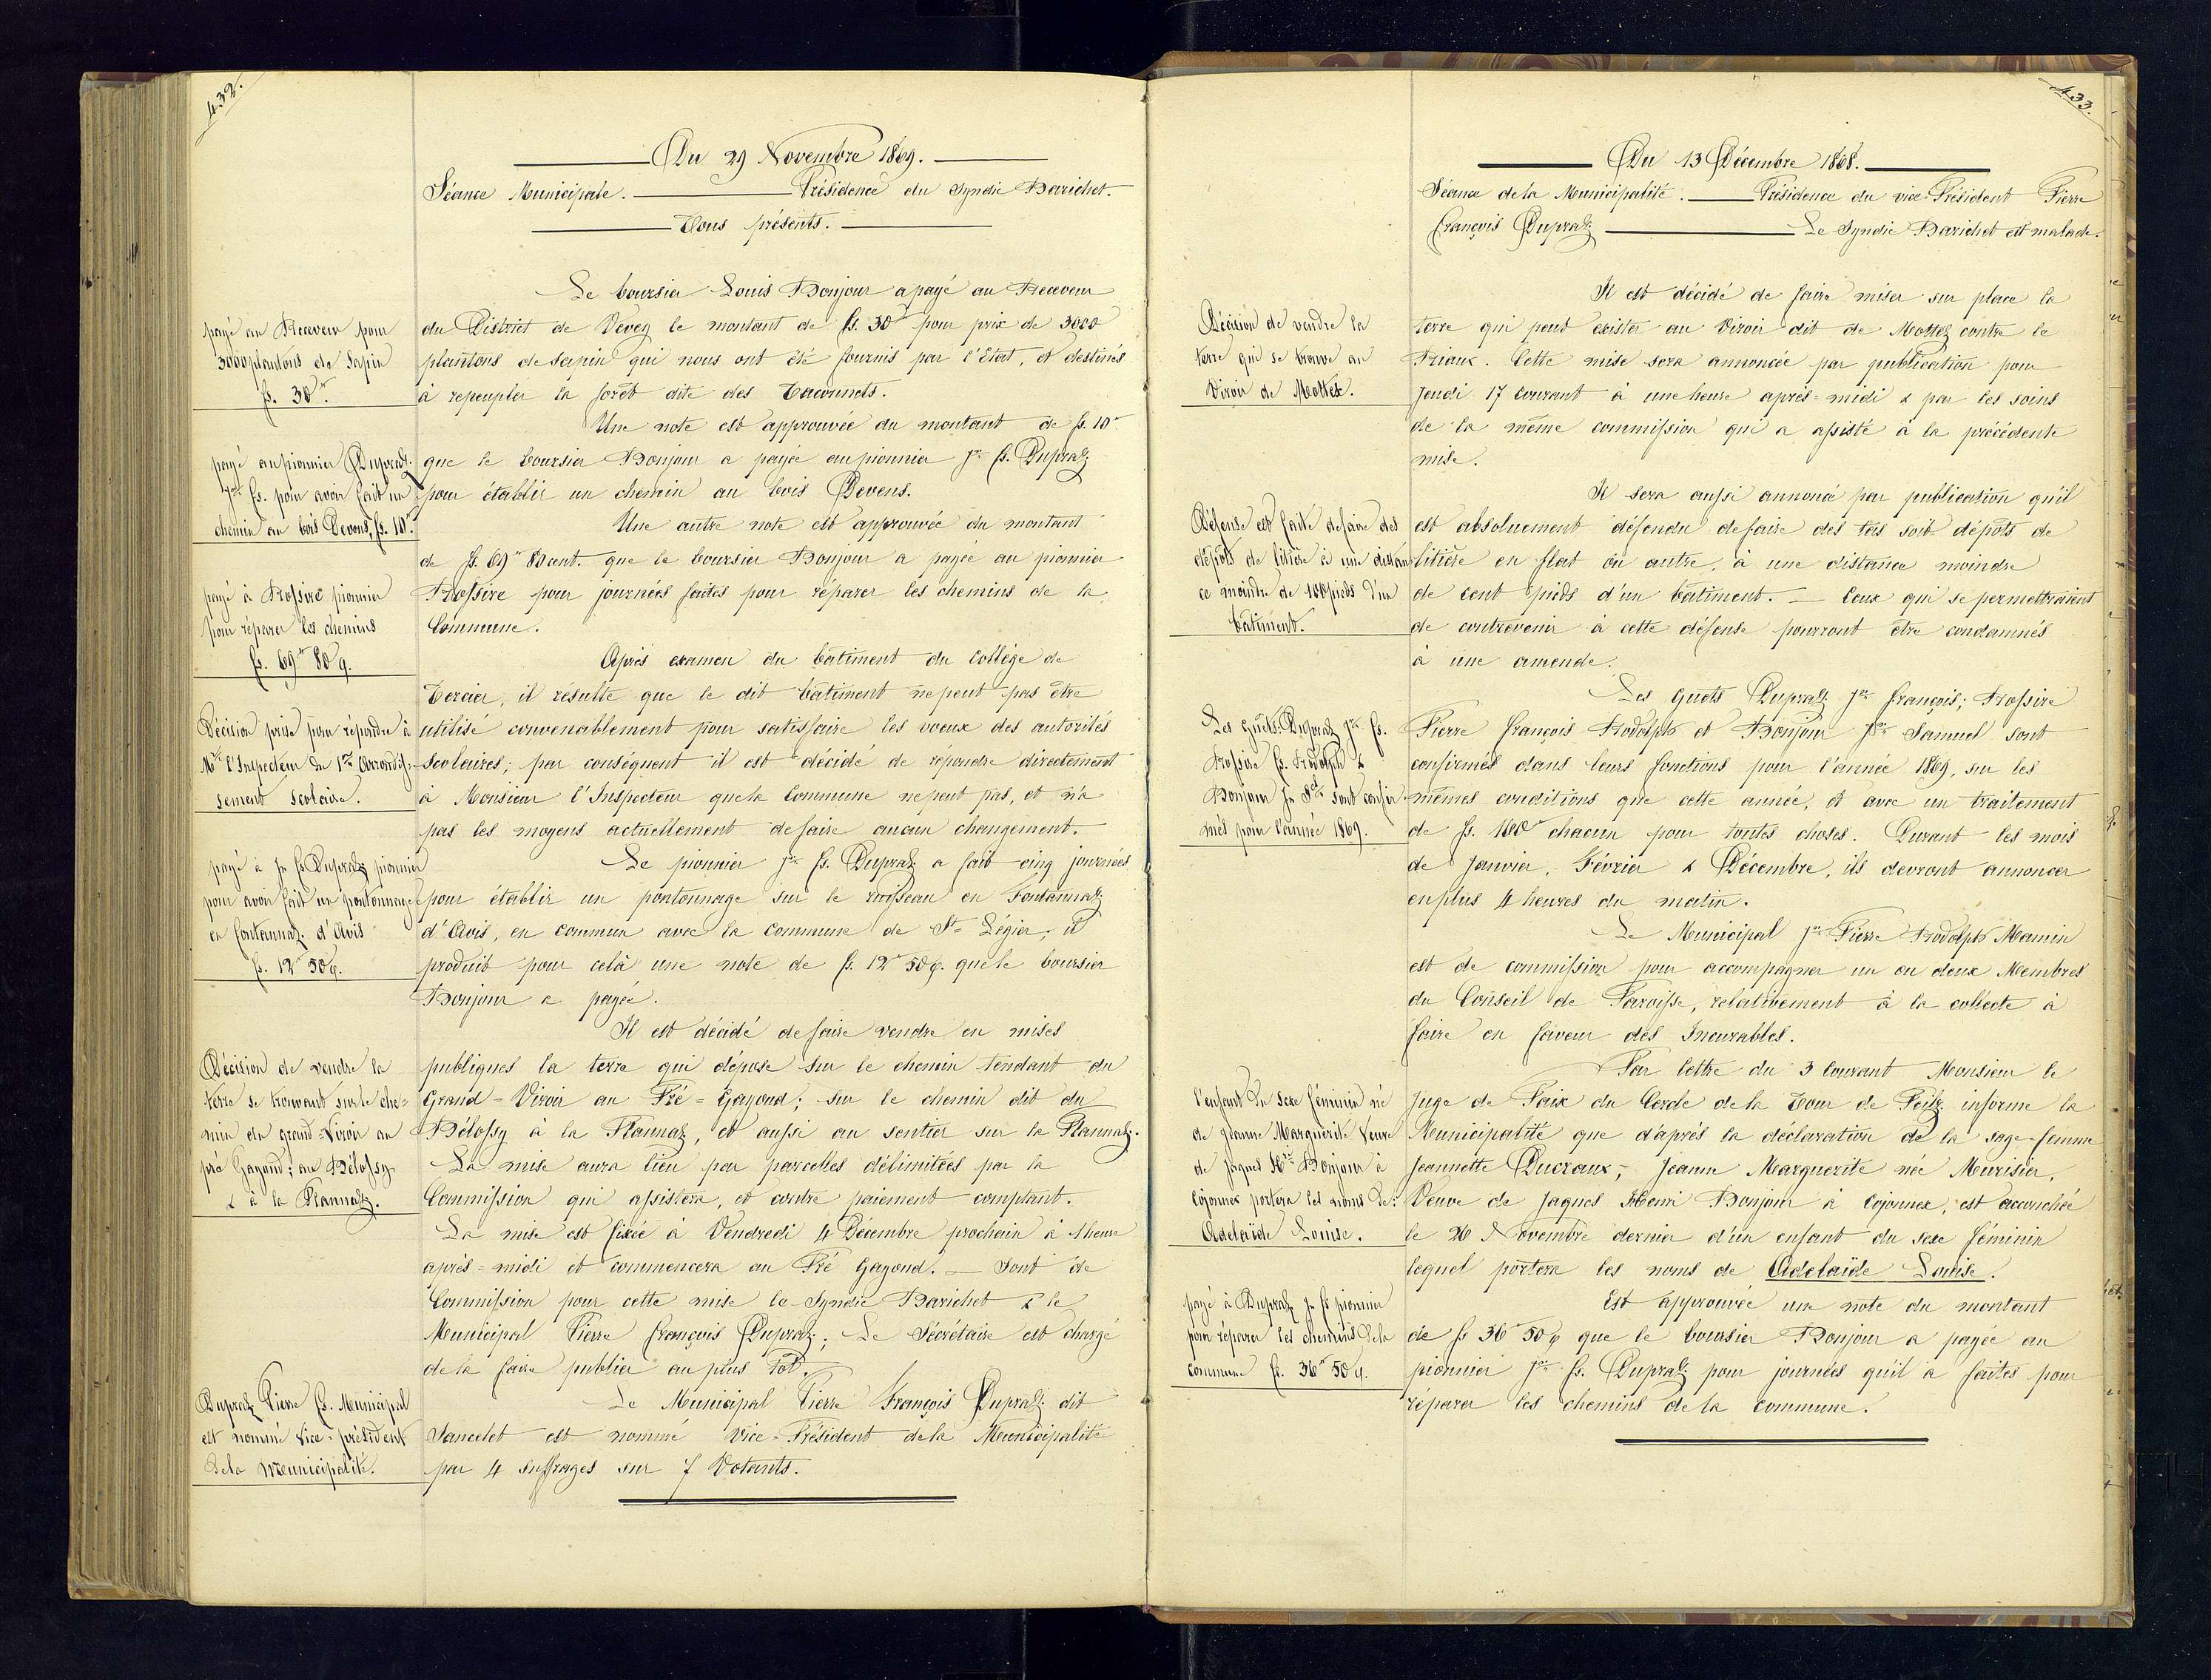 432.
Du 29 Novembre 1869.
Séance Municipale. Présidence du Syndic Barichet.
Tous présents.
payé au Receveur pour
3000 plantons de Sapin
fs. 30 fr.
Le boursier Louis Bonjour a payé au Receveur
du District de Vevey le montant de fs. 30 fr pour prix de 3000
plantons de sapin qui nous ont été fournis par l'Etat, et destinés
à repeupler la forêt dite des Tacounets.
payé au pionnier Dupraz
Jn fs. pour avoir fait un
chemin au bois Devens, fs. 10 fr.
Une note est approuvée du montant de fs. 10 fr
que le boursier Bonjour a payée au pionnier Jn fs. Dupraz
pour établir un chemin au bois Devens.
payé à Rossire pionnier
pour réparer les chemins
fs. 69 fr 80 c.
Une autre note est approuvée du montant
de fs. 69 fr 80 cent. que le boursier Bonjour a payée au pionnier
Rossire pour journées faites pour réparer les chemins de la
Commune.
Décision prise pour répondre à
Mr. l'Inspecteur du 1er Arrondis-
sement scolaire.
Après examen du bâtiment du Collège de
Tercier, il résulte que le dit bâtiment ne peut pas être
utilisé convenablement pour satisfaire les voeux des autorités
Scolaires; par conséquent il est décidé de répondre directement
à Monsieur l'Inspecteur que la Commune ne peut pas, et n'a
pas les moyens actuellement de faire aucun changement.
payé à Jn fs Dupraz pionnier
pour avoir fait un pontonnage
en Fontannaz d'Avis
fs. 12 fr 50 c.
Le pionnier Jn fs. Dupraz a fait cinq journées
pour établir un pontonnage sur le ruisseau en Fontannaz
d'Avis, en commun avec la commune de St Légier; il
produit pour celà une note de fs. 12 fr 50 c. que le boursier
Bonjour a payée.
Décision de vendre la
terre se trouvant sur le che-
min du grand-Viroir au
pré Gayoud; au Bélossy
& à la Plannaz.
Il est décidé de faire vendre en mises
publiques la terre qui dépose sur le chemin tendant du
Grand-Viroir au Pré-Gayoud; sur le chemin dit du
Bélossy à la Plannaz, et aussi au sentier sur la Plannaz.
La mise aura lieu par parcelles délimitées par la
Commission qui assistera, et contre paiement comptant.
La mise est fixée à Vendredi 4 Décembre prochain à 1 heure
après-midi et commencera au Pré Gayoud. Sont de
Commission pour cette mise le Syndic Barichet & le
Municipal Pierre François Dupraz; Le Sécrétaire est chargé
de la faire publier au plus tôt.
Dupraz Pierre fs. Municipal
est nommé Vice-président
de la Municipalité.
Le Municipal Pierre François Dupraz dit
Lancelet est nommé Vice-Président de la Municipalité
par 4 suffrages sur 7 Votants.
433.
Du 13 Décembre 1868.
Séance de la Municipalité. Présidence du vice-Président Pierre
François Dupraz Le Syndic Barichet est malade.
Décision de vendre la
terre qui se trouve au
Viroir de Mottex.
Il est décidé de faire miser sur place la
terre qui peut exister au Viroir dit de Mottex contre le
Riaux. Cette mise sera annoncée par publication pour
Jeudi 17 courant à une heure après-midi & par les soins
de la même commission qui a assisté à la précédente
mise.
Défense est faite de faire des
dépôts de litière à une distan-
ce moindre de 100 pieds d'un
bâtiment.
Il sera aussi annoncé par publication qu'il
est absoluement défendu de faire des tas soit dépôts de
litière en flat ou autre, à une distance moindre
de cent pieds d'un bâtiment. Ceux qui se permettraient
de contrevenir à cette défense pourront être condamnés
à une amende.
Les guets Dupraz Jn fs.
Rossire fs. Rodolph &
Bonjour Jn Sel sont confir-
més pour l'année 1869.
Les guets Dupraz Jn François; Rossire
Pierre François Rodolph et Bonjour Jn Samuel sont
confirmés dans leurs fonctions pour l'année 1869, sur les
mêmes conditions que cette année, et avec un traitement
de fs. 180 fr chacun pour toutes choses. Durant les mois
de Janvier, Février & Décembre, ils devront annoncer
en plus 4 heures du matin.
Le Municipal Jn Pierre Rodolph Mamin
est de commission pour accompagner un ou deux Membres
du Conseil de Paroisse, relativement à la collecte à
faire en faveur des Incurables.
l'enfant du sexe féminin né
de Jeanne Marguerite Veuve
de Jaques Hri Bonjour à
Cojonnex portera les noms de:
Adelaïde Louise.
Par lettre du 3 courant Monsieur le
Juge de Paix du Cercle de la Tour de Peilz informe la
Municipalité que d'après la déclaration de la sage-femme
Jeannette Ducraux, Jeanne Marguerite née Murisier,
Veuve de Jaques Henri Bonjour à Cojonnex, est accouchée
le 26 Novembre dernier d'un enfant du sexe féminin
lequel portera les noms de Adelaïde Louise.
payé à Dupraz Jn fs pionnier
pour réparer les chemins de la
commune fs. 36 fr 50 c.
Est approuvée une note du montant
de fs 36 fr 50 c que le boursier Bonjour a payée au
pionnier Jn fs. Dupraz pour journées qu'il a faites pour
réparer les chemins de la commune.